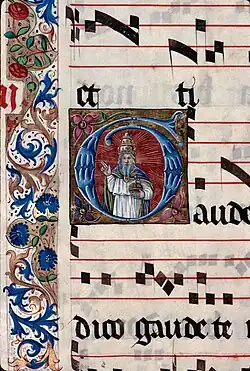 et ti
Gaude
dico gaudete